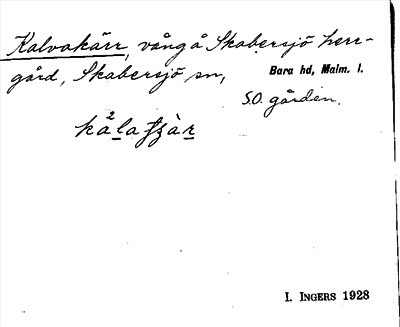 Kalvakärr, vång å Skabersjö herr-
gård, Skabersjö sn, Bara hd, Malm. l.
S.O. gården.
I. INGERS 1928